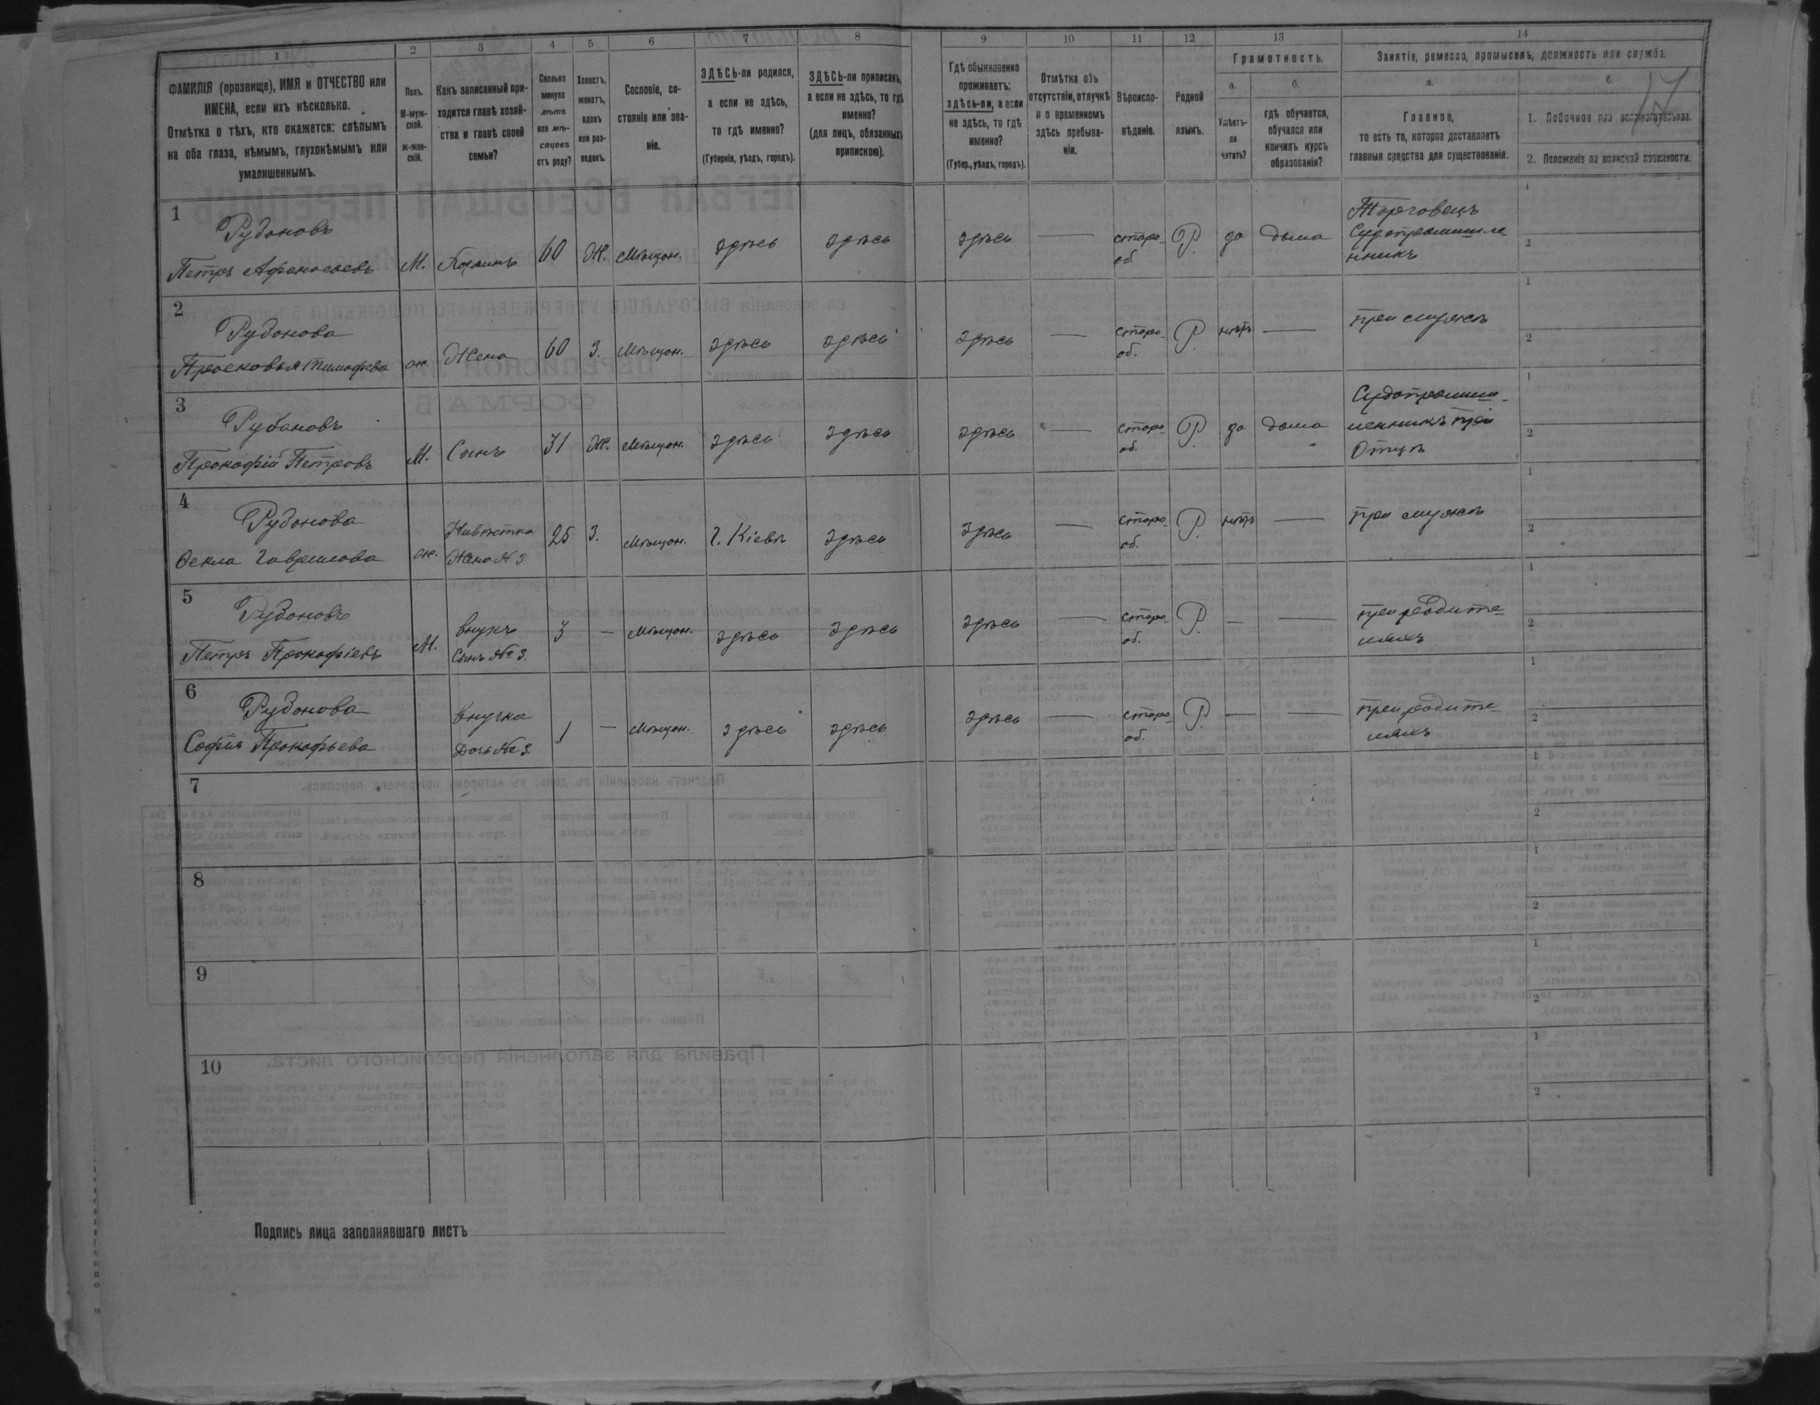 17
1 2 3 4 5 6 7 8 9 10 11 12 13 14
ФАМИЛІЯ (прозвище), ИМЯ и ОТЧЕСТВО или
ИМЕНА, если ихъ нѣсколько.
Отмѣтка о тѣхъ, кто окажется: слѣпымъ
на оба глаза, нѣмымъ, глухонѣмымъ или
умалишеннымъ.
Полъ.
М-муж-
ской.
Ж-жен-
скій.
Какъ записанный при-
ходится главѣ хозяй-
ства и главѣ своей
семьи?
Сколько
минуло
лѣтъ
или мѣ-
сяцевъ
отъ роду?
Холостъ,
женатъ,
вдовъ
или раз-
веденъ.
Сословіе, со-
стояніе или зва-
ніе.
ЗДѢСЬ-ли родился,
а если не здѣсь,
то гдѣ именно?
(Губернія, уѣздъ, городъ).
ЗДѢСЬ-ли приписанъ,
а если не здѣсь, то гдѣ
именно?
(для лицъ, обязанныхъ
припискою).
Гдѣ обыкновенно
проживаетъ:
здѣсь-ли, а если
не здѣсь, то гдѣ
именно?
(Губер., уѣздъ, городъ).
Отмѣтка объ
отсутствіи, отлучкѣ
и о временномъ
здѣсь пребыва-
ніи.
Вѣроиспо-
вѣданіе.
Родной
языкъ.
Грамотность.
а.
Умѣетъ-
ли
читать?
б.
гдѣ обучается,
обучался или
кончилъ курсъ
образованія?
Занятіе, ремесло, промыселъ, должность или служба.
а.
Главное,
то есть то, которое доставляетъ
главныя средства для существованія.
б.
1. Побочное или вспомогательное.
2. Положеніе по воинской повинности.
1
Рубановъ
Петръ Афанасьевъ М. Хозяинъ 60 Ж. Мѣщан. здѣсь здѣсь здѣсь — старо-об. Р. да дома Торговецъ
Судопромышле
нникъ
2
Рубанова
Прасковья Тимофѣева ж. Жена 60 З. Мѣщан. здѣсь здѣсь здѣсь — старо-об. Р. нѣтъ — при мужѣ
3
Рубановъ
Прокофій Петровъ М. Сынъ 31 Ж. Мѣщан. здѣсь здѣсь здѣсь — старо-об. Р. да дома Судопромыш-
ленникъ при
Отцѣ
4
Рубанова
Ѳекла Гаврилова ж. Нивѣстка
Жена № 3 25 З. Мѣщан. г. Кіевъ здѣсь здѣсь — старо-об. Р. нѣтъ — при мужѣ
5
Рубановъ
Петръ Прокофіевъ М. внукъ
Сынъ № 3. 3 — Мѣщан. здѣсь здѣсь здѣсь — старо-об. Р. — — при родите-
ляхъ
6
Рубанова
Софія Прокофьева внучка
Дочь № 3. 1 — Мѣщан. здѣсь здѣсь здѣсь — старо-об. Р. — — при родите-
ляхъ
7
8
9
10
Подпись лица заполнявшаго листъ